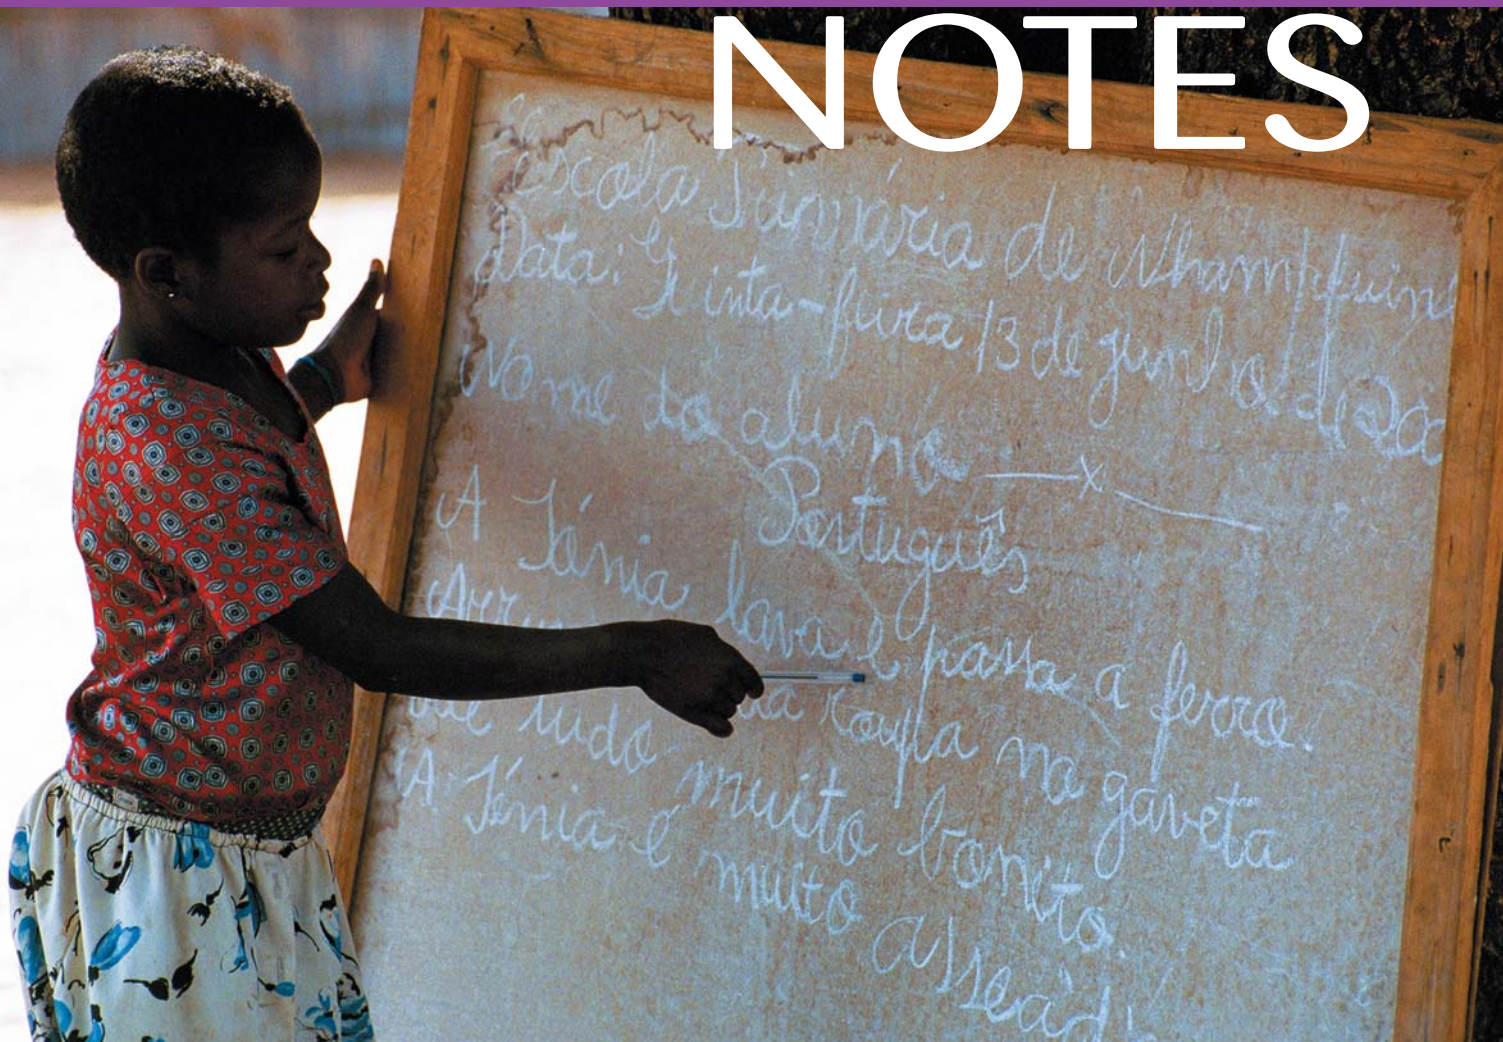 NOTES
Escola Primária de
Data: Quinta-feira 13 de junho de 200
Nome do aluno —x—
Português
A Tánia lava e passa a ferro.
roupa na gaveta
tudo muito bonito.
A Tánia é muito assead